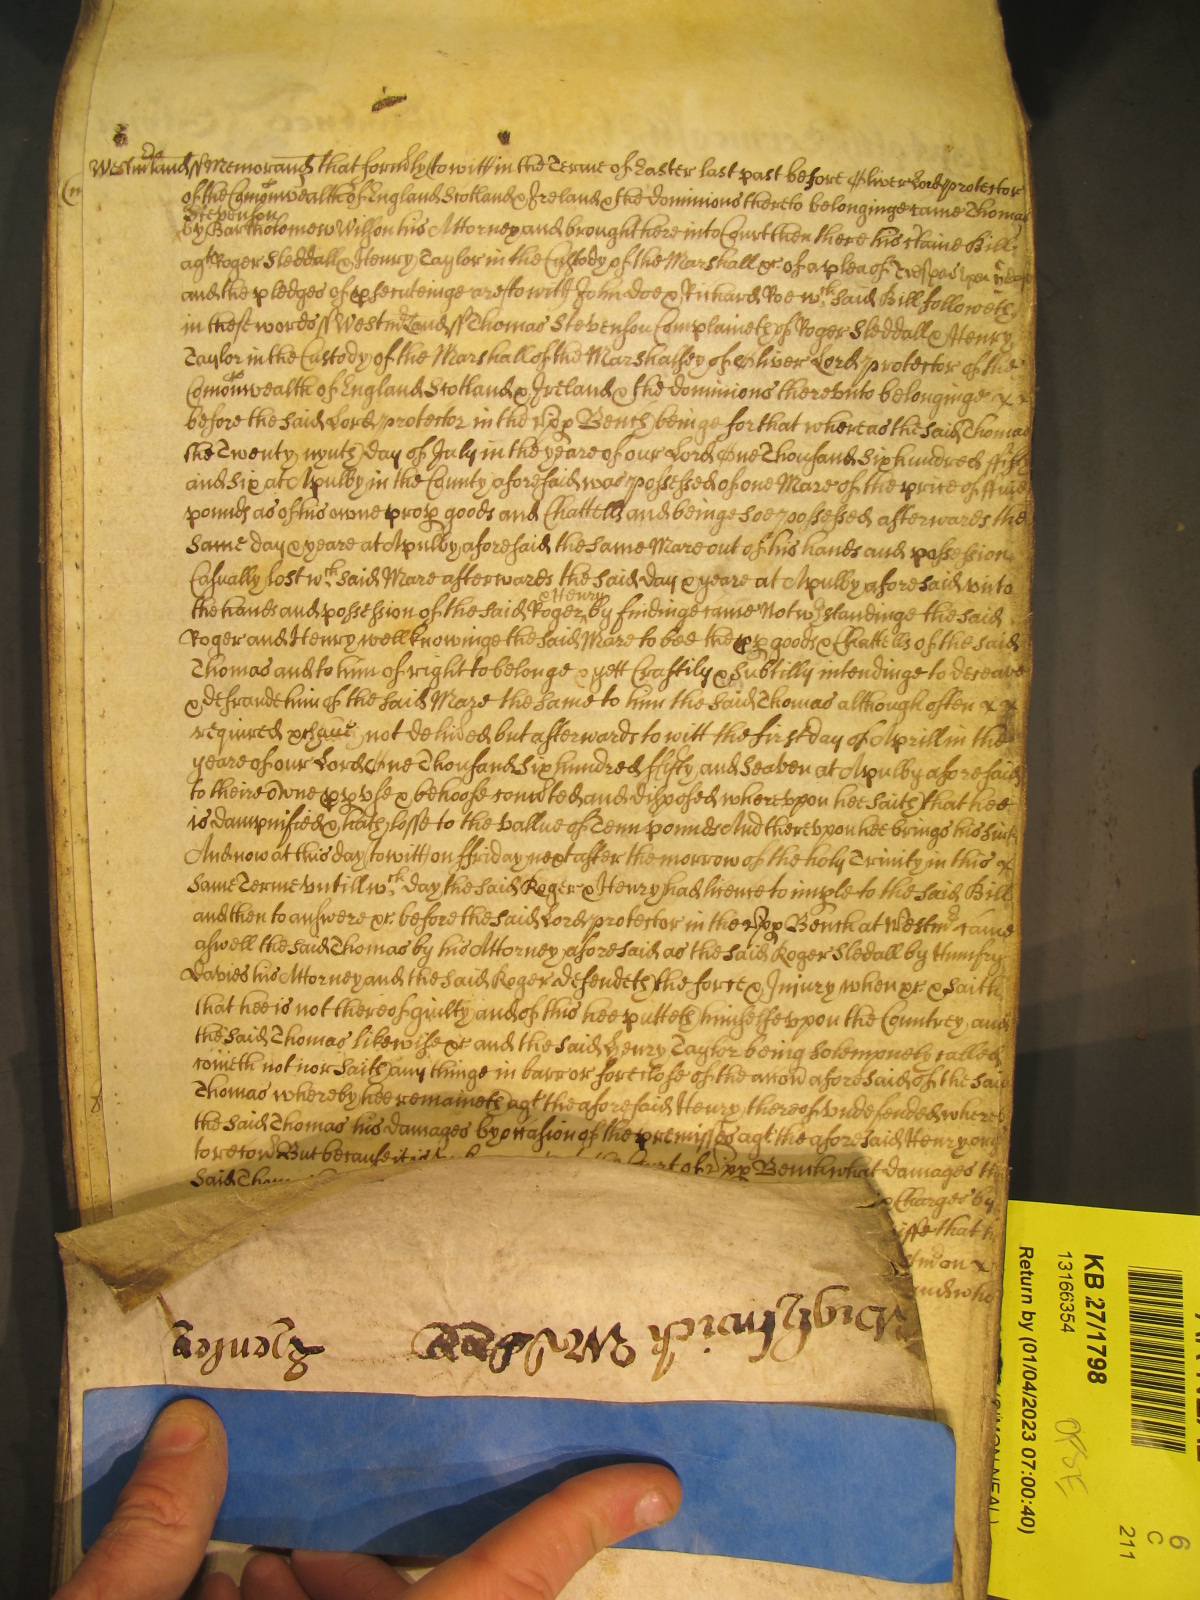 Westmland ss Memorand that formly (to witt) in the Terme of Easter last past before Oliver Lord protector
of the Comonwealth of England Scotland & Ireland & the dominions thereto belonginge came Thomas
Stevenson
by Bartholomew Wilson his Attorney and brought here into Court then there his certaine Bill
agt Roger Sleddall & Henry Taylor in the Custody of the Marshall &c of a plea of Trespas upon the case
and the pledges of psecuteinge are (to witt) John Doe & Richard Roe wch said Bill followeth
in these words ss Westmland ss Thomas Stevenson Complaineth of Roger Sleddall & Henry
Taylor in the Custody of the Marshall of the Marshalsey of Oliver Lord protector of the
Comonwealth of England Scotland & Ireland & the dominions thereunto belonginge x x
before the said Lord protector in the upp Bench beinge for that whereas the said Thomas
the Twenty nynth day of July in the yeare of our Lord One Thousand Six hundred ffifty
and Six at Apulby in the County aforesaid was possessed of one Mare of the price of ffive
pounds as of his owne prop goods and Chattells and beinge soe possessed afterwards the
same day & yeare at Apulby aforesaid the same Mare out of his hands and possession
Casually lost wch said Mare afterwards the said day & yeare at Apulby aforesaid unto
& Henry
the hands and possession of the said Roger by findinge came Notwthstandinge the said
Roger and Henry well knowinge the said Mare to bee the pp goods & Chattells of the said
Thomas and to him of right to belonge & yett Craftily & Subtilly intendinge to deceave
& defraude him of the said Mare the same to him the said Thomas although often x x
required &c have not delived but afterwards to witt the first day of Aprill in the
yeare of our Lord One Thousand Six hundred ffifty and Seaven at Apulby aforesaid
to theire owne pp use & behoofe convted and disposed whereupon hee saith that hee
is dampnified & hath losse to the vallue of Tenn pounds And thereupon hee brings his suit
And now at this day (to witt) on ffriday next after the morrow of the holy Trinity in this x
same Terme untill wch day the said Roger & Henry had licence to imple to the said Bill
and then to answere &c before the said Lord protector in the upp Bench at Westmr came
aswell the said Thomas by his Attorney aforesaid as the said Roger Sledall by Humfry
Davies his Attorney and the said Roger defendeth the force & Injury when &c & saith
that hee is not thereof guilty and of this hee putteth himselfe upon the Countrey and
the said Thomas likewise &c and the said Henry Taylor being Solempnely called
cometh not nor saith any thinge in barr or foreclose of the accon aforesaid of the said
Thomas whereby hee remaineth agt the aforesaid Henry thereof undefended where
the said Thomas his damages by occasion of the premisses agt the aforesaid Henry ought
to recov But because it is upp Bench what damages the
Said Thomas
Charges by
iffe that
and whe
KB 27/1798
13166354
Return by (01/04/2023 07:00:40)
(SIMON NEAL)
6
C
211